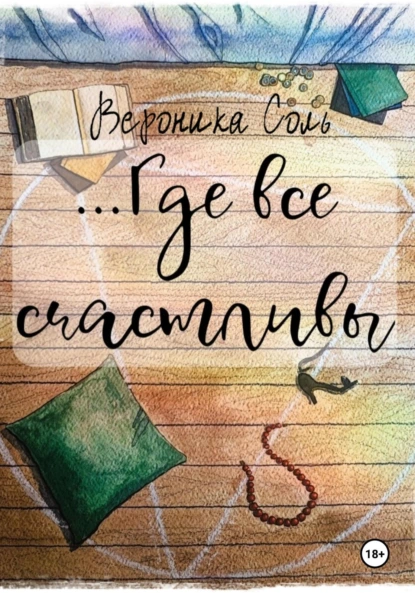 Вероника Соль
...Где все
счастливы
18+